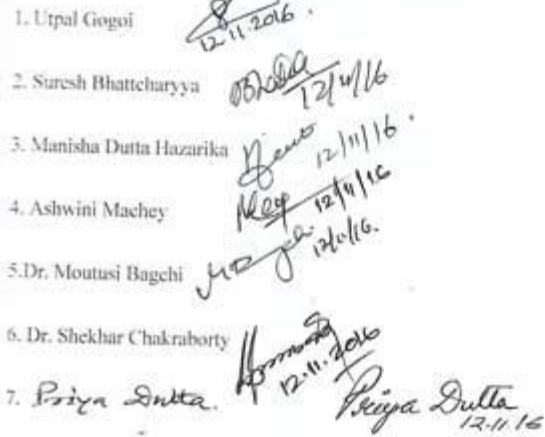 1. Utpal Gogoi 12.11.2016.
2. Suresh Bhattcharyya 12/11/16
3. Manisha Dutta Hazarika 12/11/16.
4. Ashwini Machey 12/11/16
5.Dr. Moutusi Bagchi 12/11/16.
6. Dr. Shekhar Chakraborty 12.11.2016
7. Priya Dutta. Priya Dutta
12.11.16